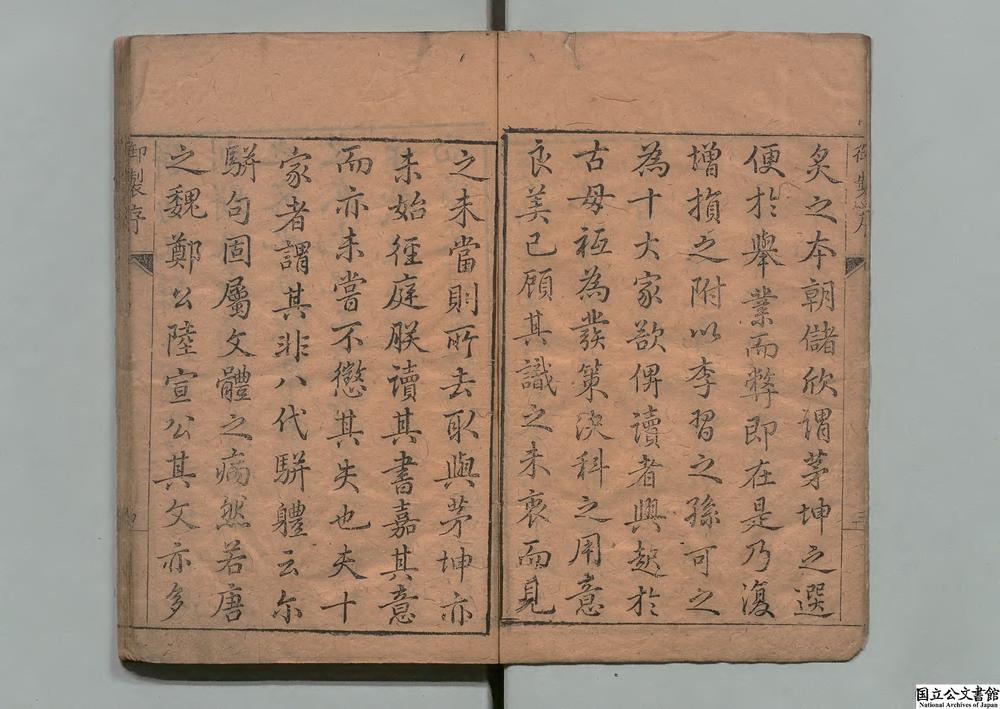 炙之本朝儲欣謂茅坤之選
便於舉業而弊即在是乃復
增損之附以李習之孫可之
為十大家欲俾讀者興起於
古毋祗為發策決科之用意
良美已顧其識之未衷而見
之未當則所去取與茅坤亦
未始徑庭朕讀其書嘉其意
而亦未嘗不懲其失也夫十
家者謂其非八代駢體云尔
駢句固屬文體之病然若唐
之魏鄭公陸宣公其文亦多
御製序
国立公文書館
National Archives of Japan